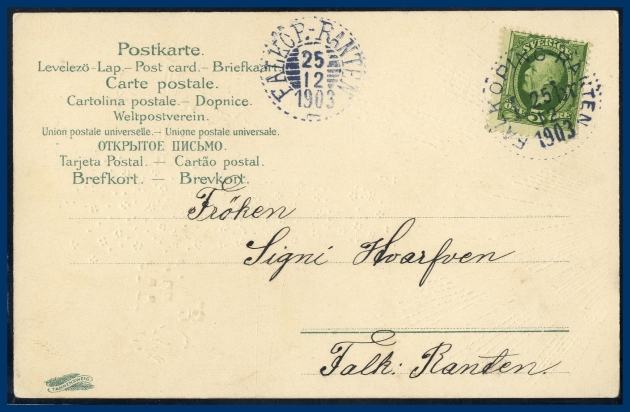 Postkarte.
Levelezö-Lap.— Post card.— Briefkaart
Carte postale.
Cartolina postale.— Dopnice.
Weltpostverein.
Union postale universelle.— Unione postale universale.
ОТКРЫТОЕ ПИСЬМО.
Tarjeta Postal. — Cartão postal.
Brefkort. — Brevkort.
FALKÖP.-RANTEN
25
12
1903
SVERIGE
FALKÖPING RANTEN
25
12
1903
Fröken
Signi Hvarfven
Falk: Ranten.